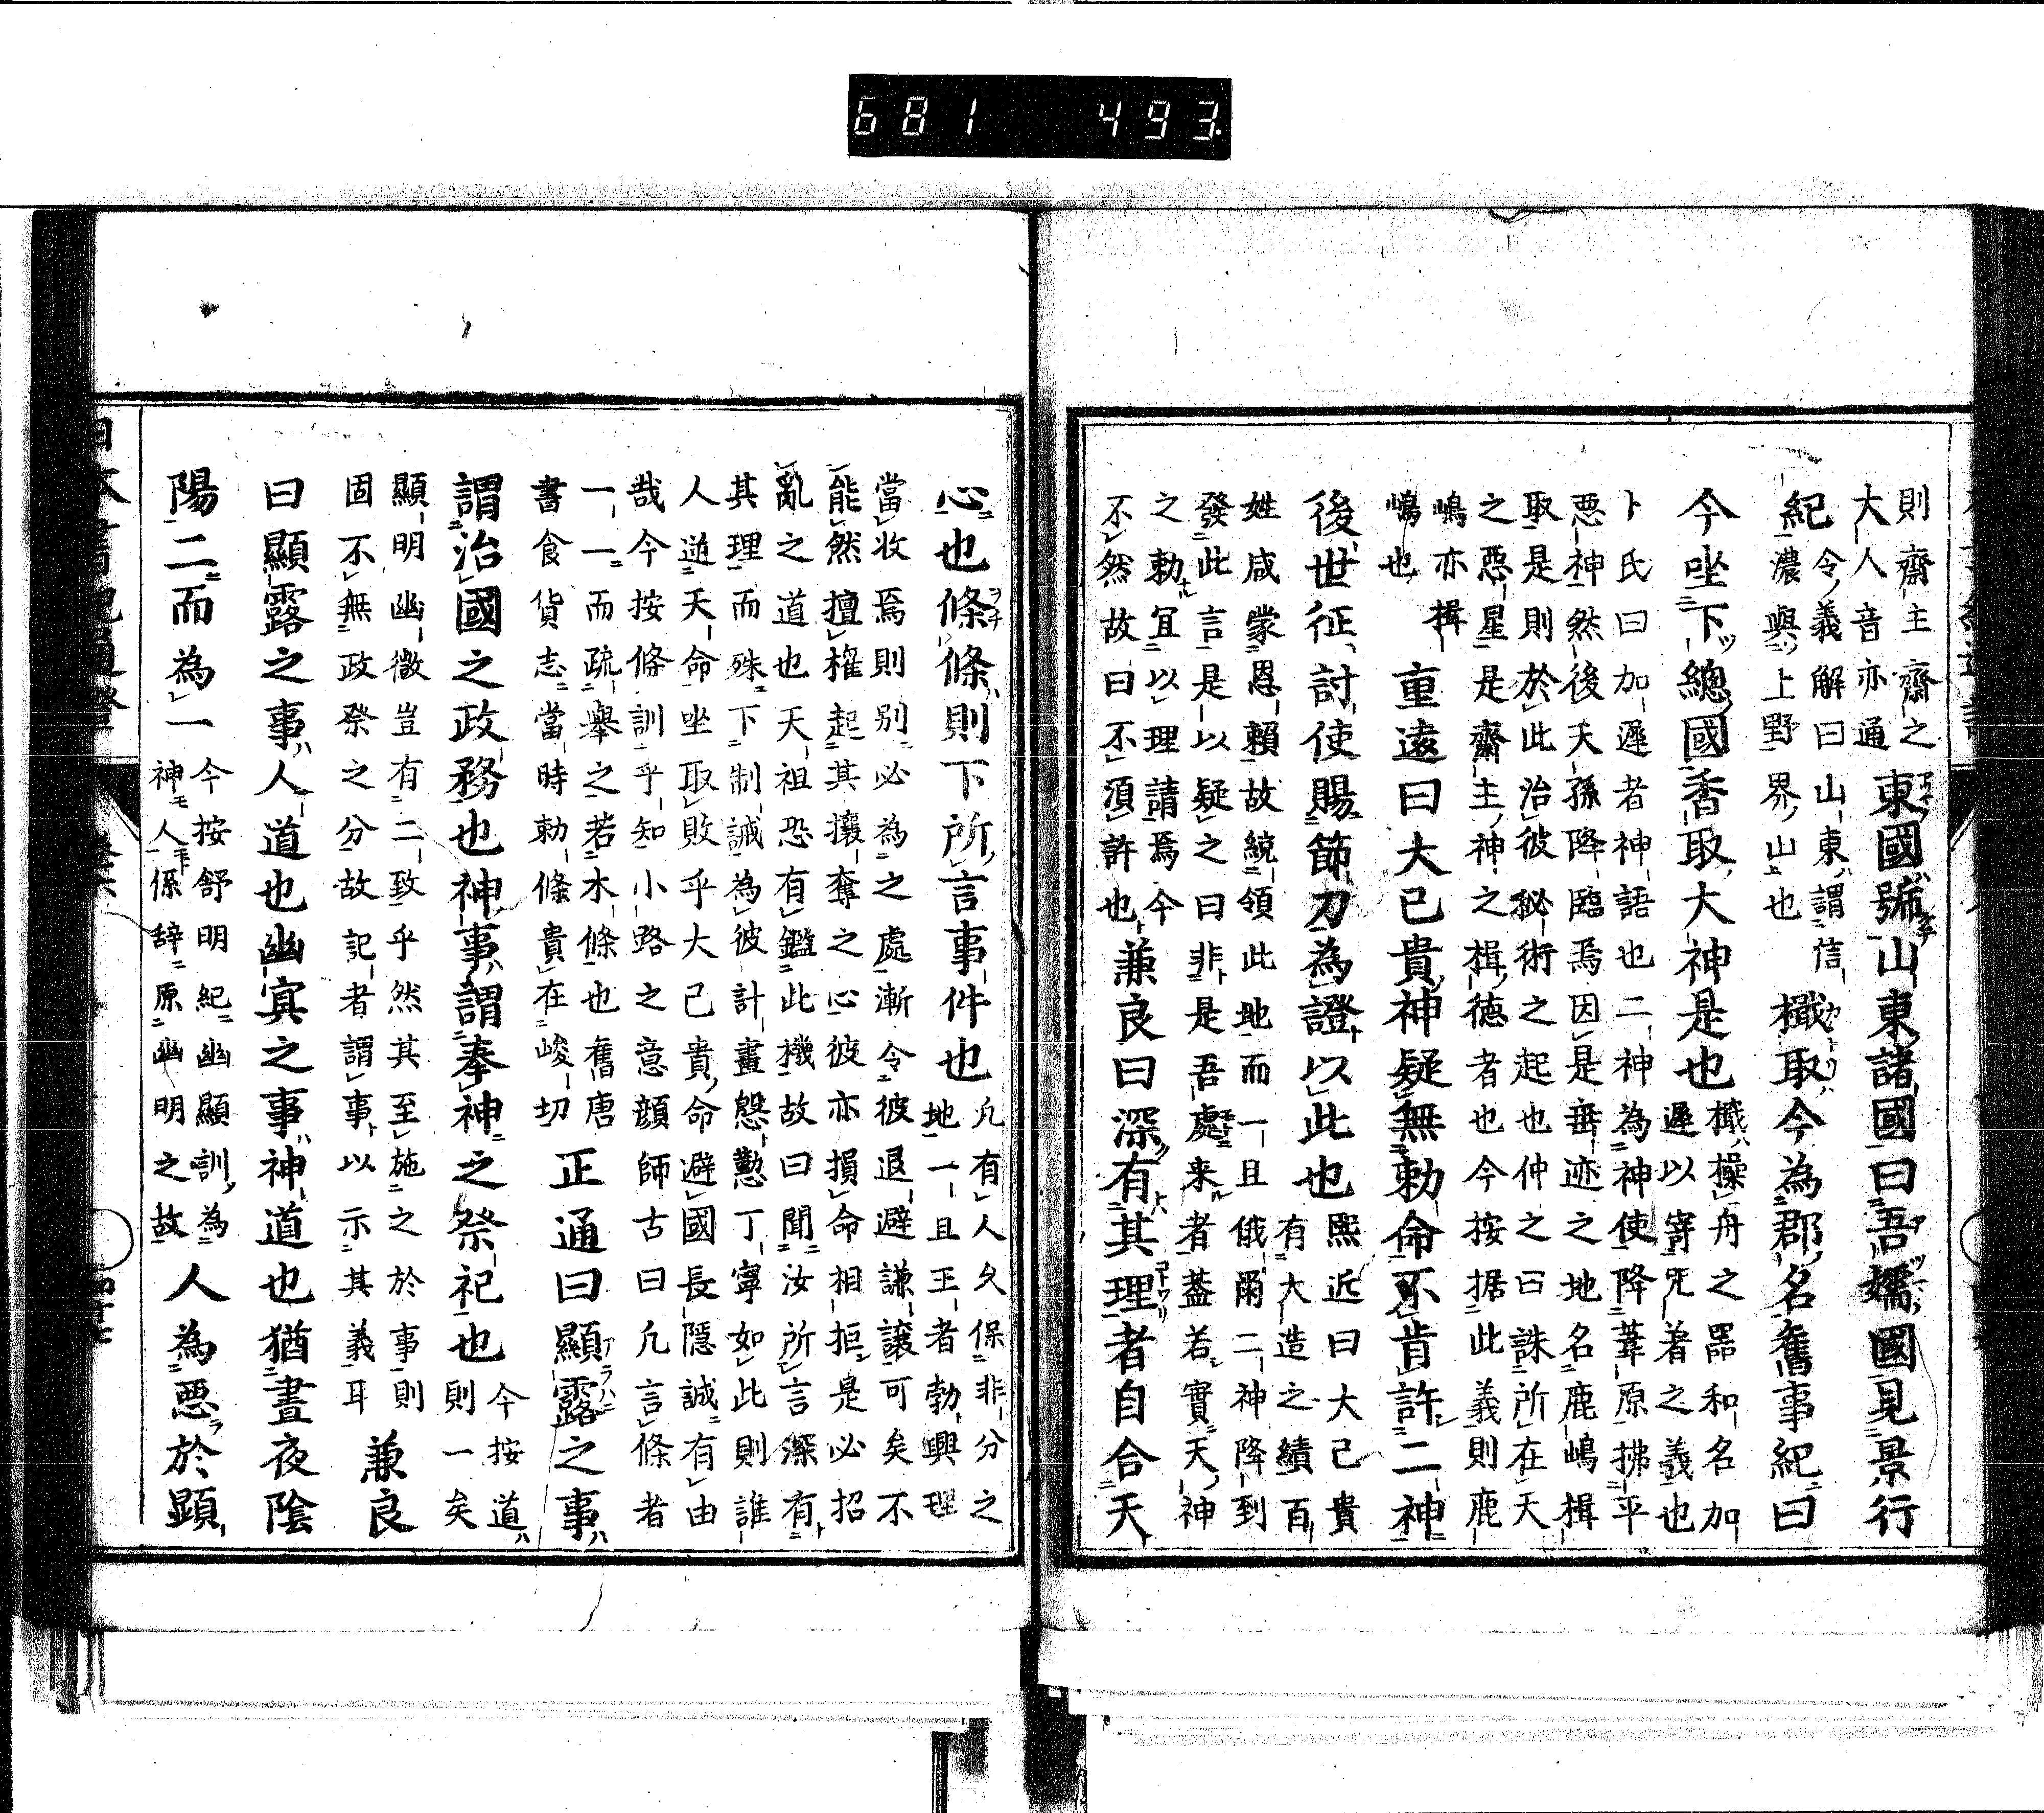 681 493.
則齋主齋之
大人音亦通
東國號山東諸國曰吾嬬國見景行
紀
令義解曰山東謂信
濃與上野界山也
檝取今為郡名舊事紀曰
今坐下總國香取大神是也
檝操舟之噐和名加
遲以寄咒著之義也
卜氏曰加遲者神語也二神為神使降葦原拂平
悪神然後天孫降臨焉因是垂迹之地名鹿嶋楫
取是則於此治彼秘術之起也仲之曰誅所在天
之悪星是齋主神之楫德者也今按据此義則鹿
嶋亦楫
嶋也
重遠曰大已貴神疑無勅命不肯許二神
後世征討使賜節刀為證以此也
熙近曰大己貴
有大造之績百
姓咸蒙恩賴故統領此地而一且俄爾二神降到
發此言是以疑之曰非是吾處来者蓋若實天神
之勅宜以理請焉今
不然故曰不須許也
兼良曰深有其理者自合天
心也條條則下所言事件也
凢有人久保非分之
地一且王者勃興理
當收焉則别必為之處漸令彼退避謙讓可矣不
能然擅權起其攘奪之心彼亦損命相拒是必招
亂之道也天祖恐有鑑此機故曰聞汝所言深有
其理而殊下制誠為彼計畫慇懃丁寧如此則誰
人逆天命坐取敗乎大己貴命避國長隱誠有由
哉今按條訓乎知小路之意顔師古曰凢言條者
一一而疏舉之若木條也舊唐
書食貨志當時勅條貴在峻切
正通曰顯露之事
謂治國之政務也神事謂奉神之祭祀也
今按道
則一矣
顯明幽微豈有二致乎然其至施之於事則
固不無政祭之分故記者謂事以示其義耳
兼良
曰顯露之事人道也幽冥之事神道也猶晝夜陰
陽二而為一
今按舒明紀幽顯訓為
神人係辞原幽明之故
人為悪於顯